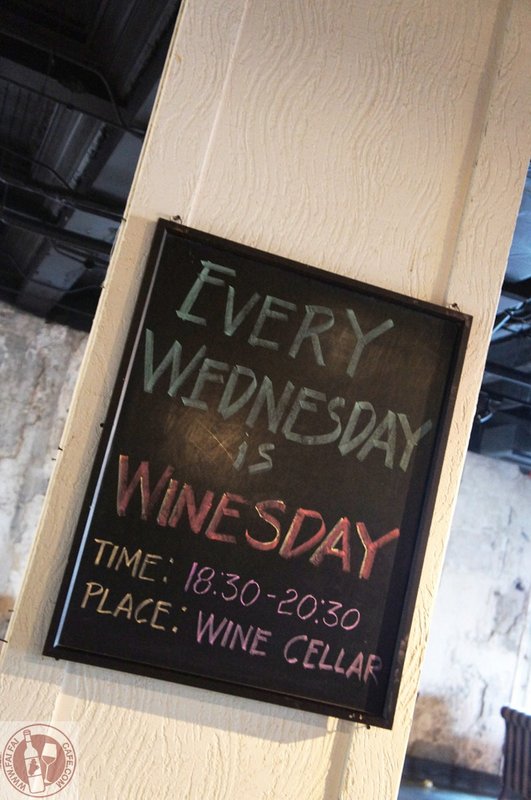 EVERY
WEDNESDAY
is
WINESDAY
TIME: 18:30-20:30
PLACE: WINE CELLAR
WWW.FAI FAI CAFE.COM